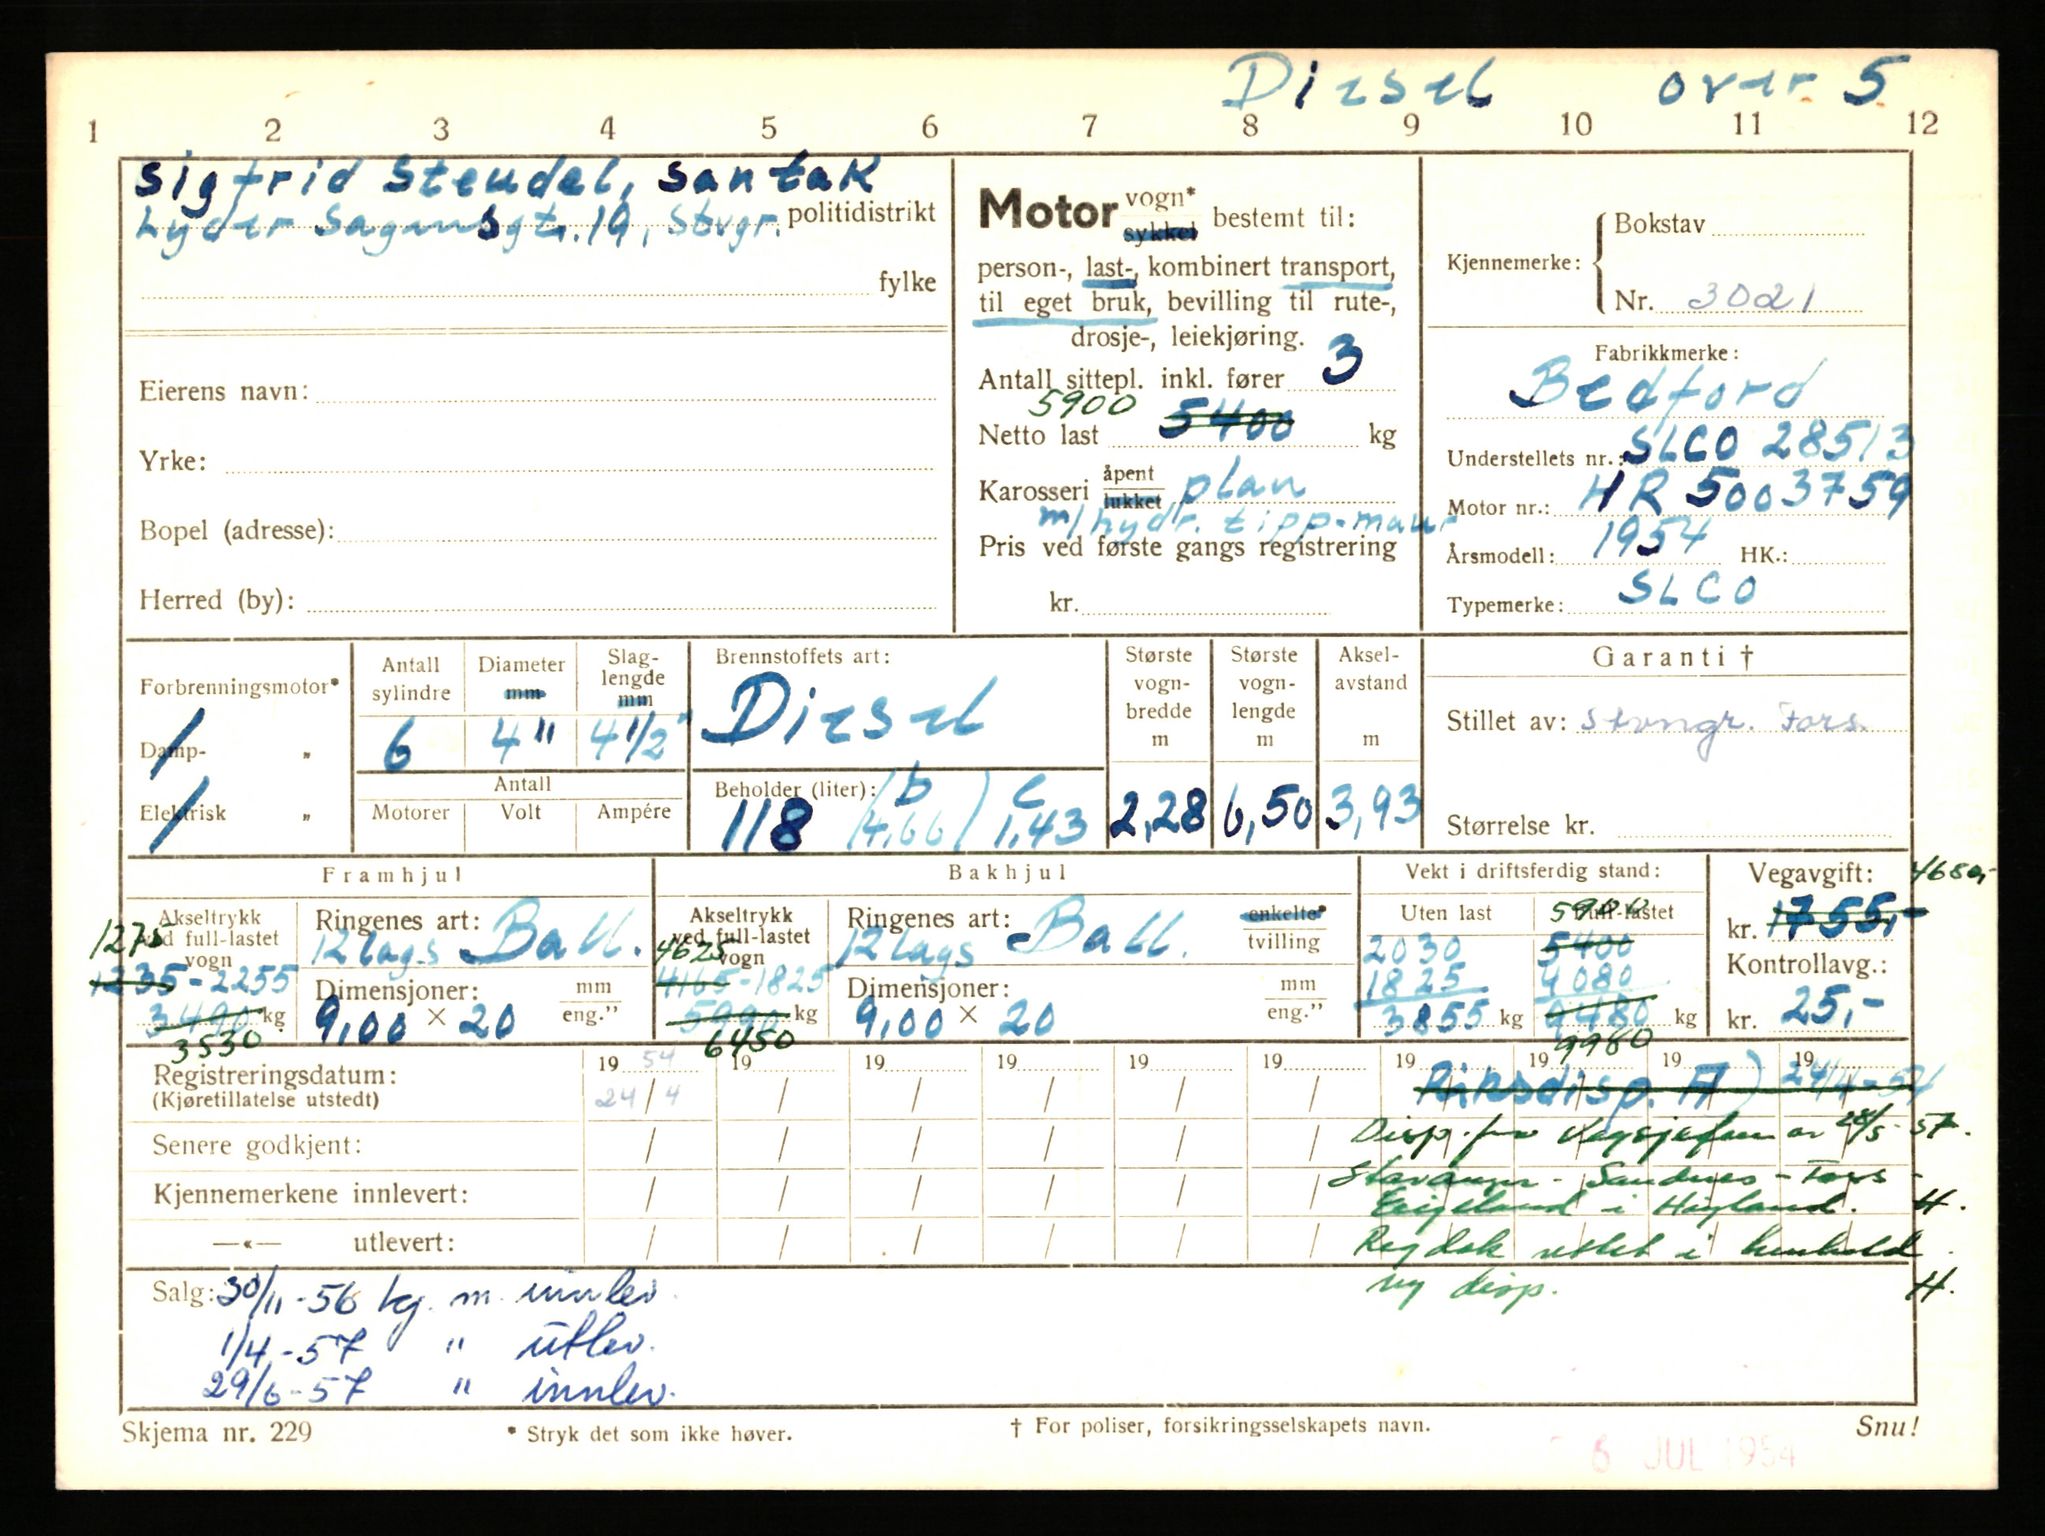 Diesel over 5
1 2 3 4 5 6 7 8 9 10 11 12
Sigfrid Steudel, Santak
Lyder Sagensgt. 19, Stvgr. politidistrikt
fylke
Eierens navn:
Yrke:
Bopel (adresse):
Herred (by):
Motor vogn* sykkel bestemt til:
person-, last-, kombinert transport,
til eget bruk, bevilling til rute-,
drosje-, leiekjøring.
Antall sittepl. inkl. fører 3
5900
Netto last 5400 kg
Karosseri åpent lukket plan
m/hydr. tipp-
Pris ved første gangs registrering
kr.
Kjennemerke: Bokstav
Nr. 3021
Fabrikkmerke:
Bedford
Understellets nr.: SLCO 28513
Motor nr.: HR 5003759
Årsmodell: 1954 HK.:
Typemerke: SLCO
Forbrenningsmotor*
Damp- „
Elektrisk „
Antall sylindre 6
Diameter mm 4"
Slaglengde mm 4 1/2"
Antall
Motorer Volt Ampére
Brennstoffets art:
Diesel
Beholder (liter): b c
118 4,66 1,43
Største vognbredde m 2,28
Største vognlengde m 6,50
Akselavstand m 3,93
Garanti †
Stillet av: Stvngr. Fors.
Størrelse kr.
Framhjul
Akseltrykk ved full-lastet vogn
1275
1235 - 2255
3490 kg
3530
Ringenes art: 12 lags Ball.
Dimensjoner: mm eng."
9,00 × 20
Bakhjul
Akseltrykk ved full-lastet vogn
4625
4165 - 1825
5990 kg
6450
Ringenes art: 12 lags Ball. enkelte* tvilling
Dimensjoner: mm eng."
9,00 × 20
Vekt i driftsferdig stand:
Uten last Full-lastet
5900
2030 5400
1825 4080
3855 kg 9480 kg
9980
Vegavgift: 4680,-
kr. 1755,-
Kontrollavg.:
kr. 25,-
Registreringsdatum: 19 54 19 19 19 19 19 19 19 19 19
(Kjøretillatelse utstedt) 24/4
Riksdisp. A) 24/4-54
Senere godkjent:
Disp. fra Vegsjefen av 28/5-57.
Kjennemerkene innlevert:
Stavanger - Sandnes - Fors -
i Høyland. H.
—«— utlevert:
Reg dok rettet i henhold
ny disp. H.
Salg: 30/11-56 kj. m. innlev.
1/4-57 " utlev.
29/6-57 " innlev.
Skjema nr. 229 * Stryk det som ikke høver. † For poliser, forsikringsselskapets navn. Snu!
6 JUL 1954